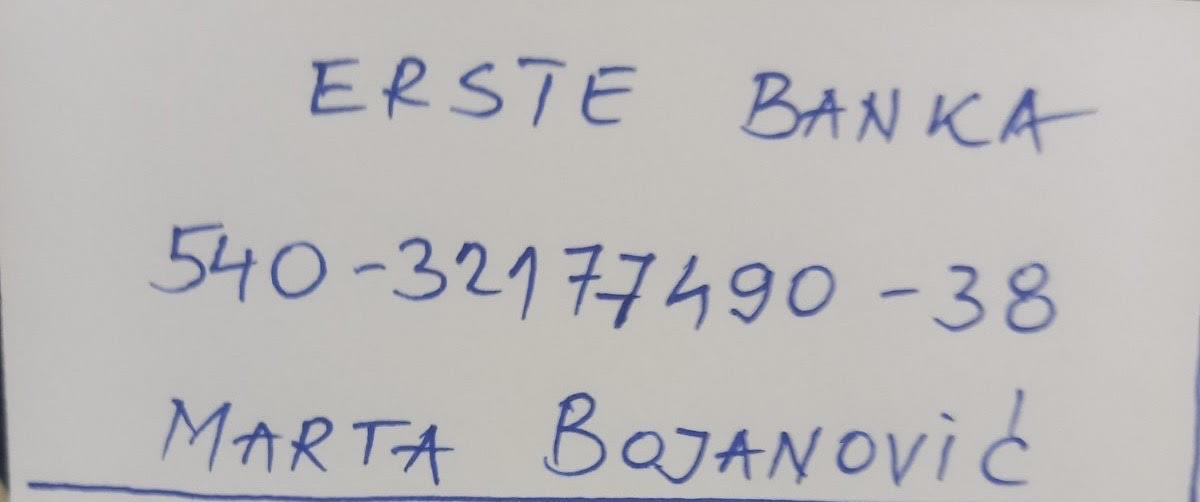 ERSTE BANKA
540-32177490-38
MARTA BOJANOVIĆ